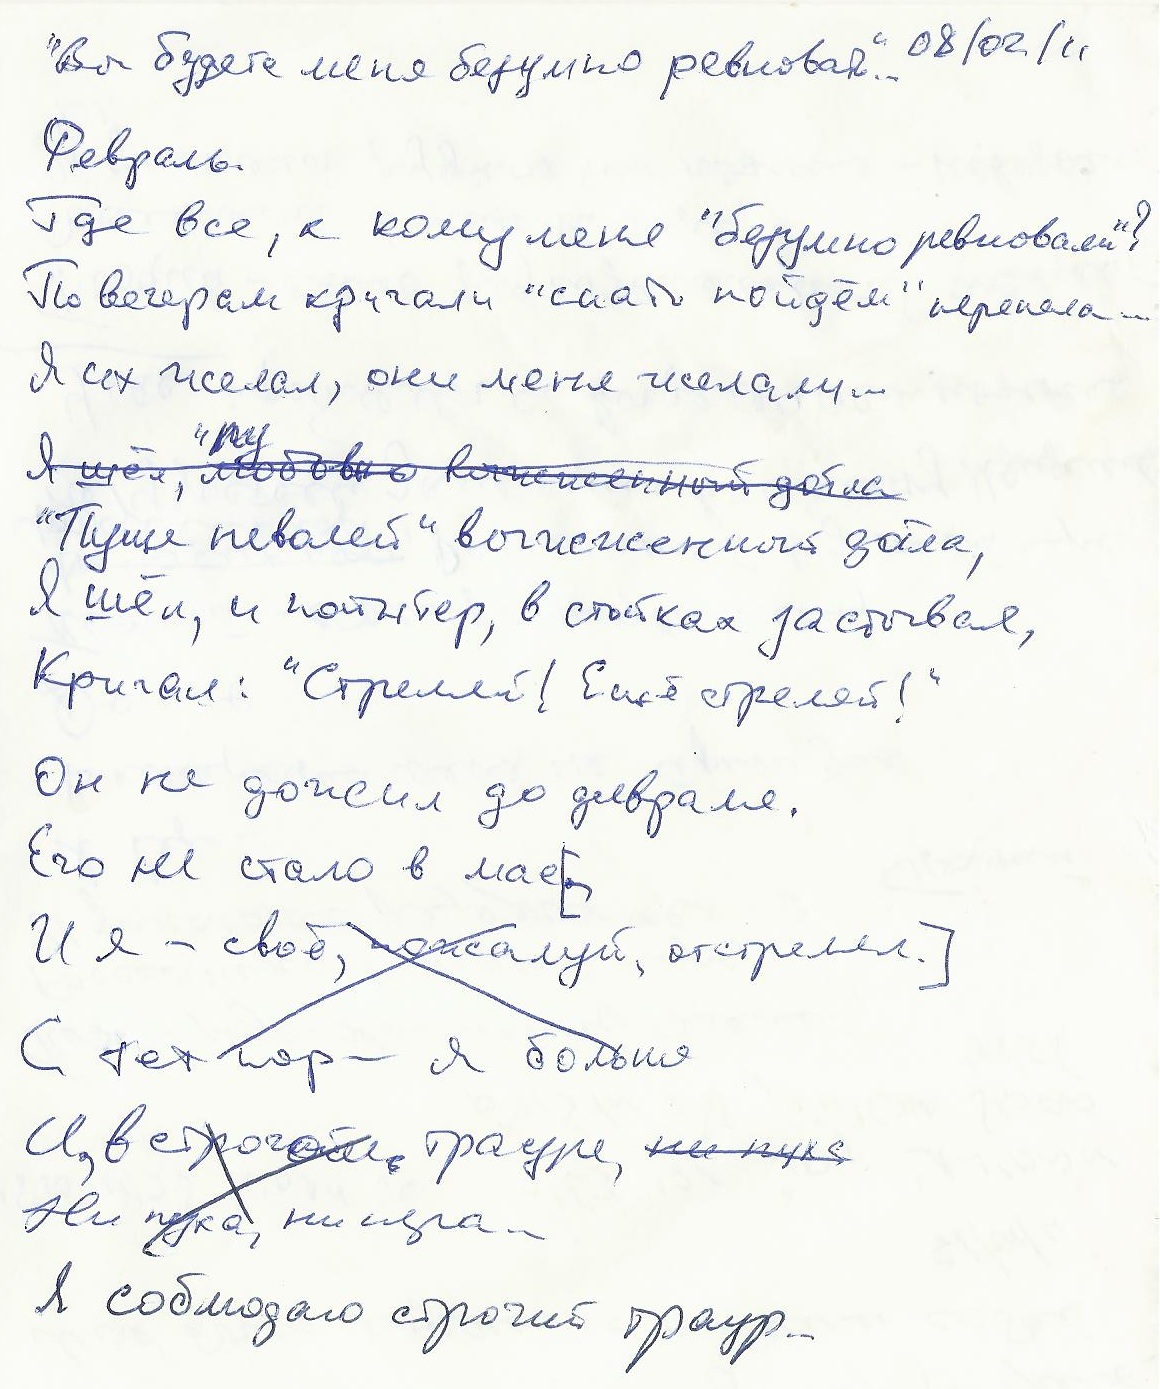 "Вы будете меня безумно ревновать"... 08/02/11
Февраль.
Где все, к кому меня "безумно ревновали"?
По вечерам кричали "спать пойдём" перепела...
Я их желал, они меня желали...
"пу
Я шёл, любовью выжженный дотла
"Пуще неволей" выжженный дотла,
Я шёл, и пойнтер, в стойках застывая,
Кричал: "Стреляй! Ещё стреляй!"
Он не дожил до февраля.
Его не стало в мае[,
И я – своё, пожалуй, отстрелял.]
С тех пор – я больше
И, в строгом, трауре, ни пуха
Ни пуха, ни пера...
Я соблюдаю строгий траур...